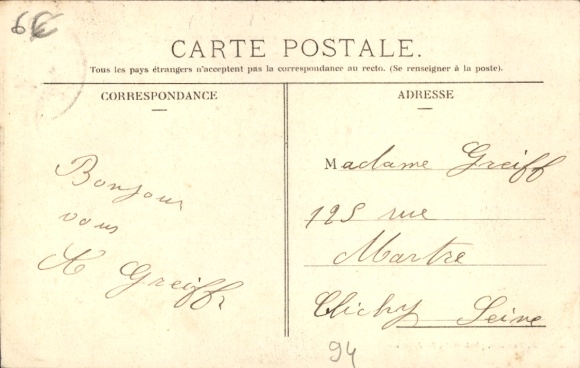 6€
CARTE POSTALE.
Tous les pays étrangers n'acceptent pas la correspondance au recto. (Se renseigner à la poste).
CORRESPONDANCE
ADRESSE
Bonjour
vous
A Greiff
Madame Greiff
125 rue
Martre
Clichy Seine
94